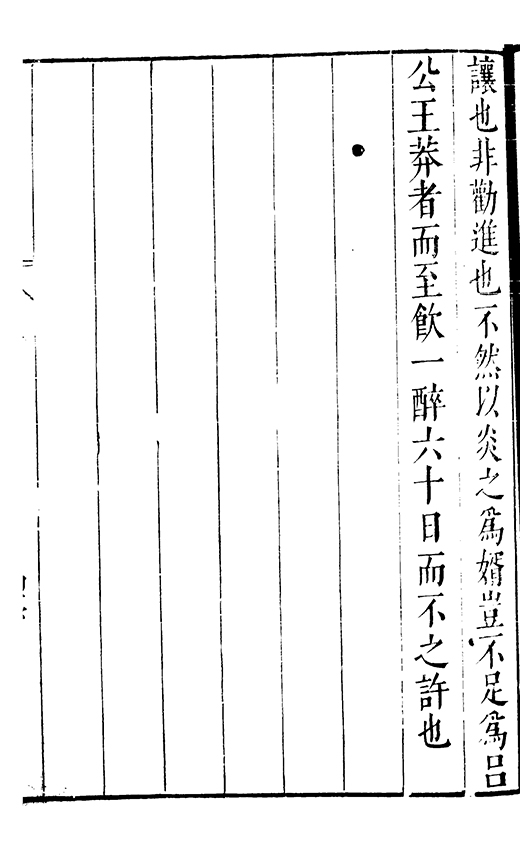 讓也非勸進也不然以炎之爲婿豈不足爲呂
公王莽者而至飲一醉六十日而不之許也